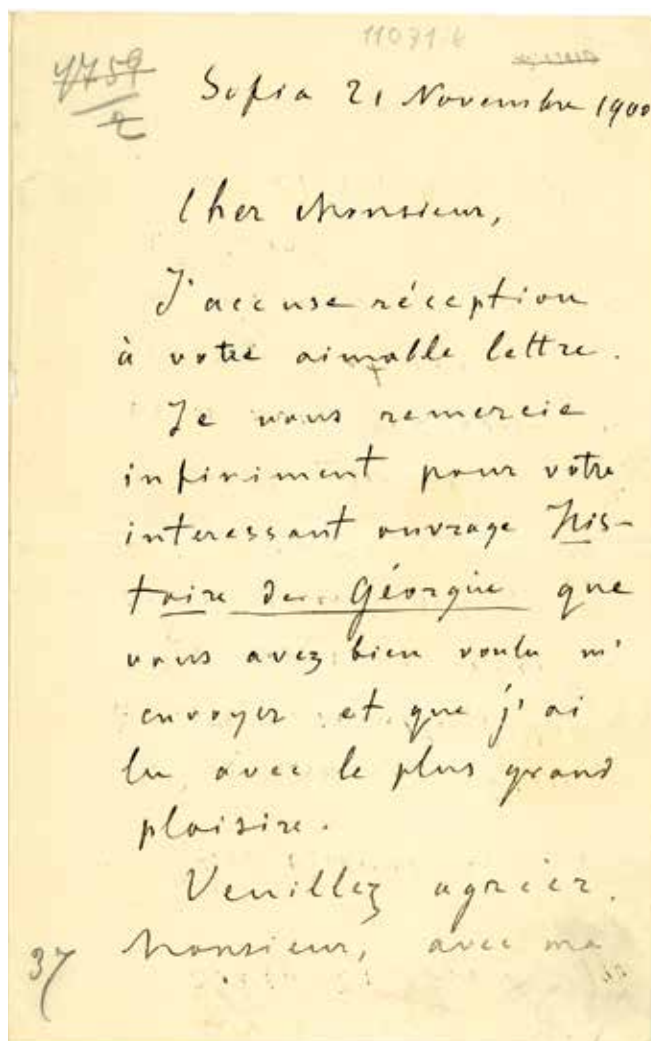 11071 b
4759
2
Sofia 21 Novembre 1900
Cher Monsieur,
J'accuse réception
à votre aimable lettre.
Je vous remercie
infiniment pour votre
interessant ouvrage His-
toire de Géorgie que
vous avez bien voulu m'
envoyer et que j'ai
lu avec le plus grand
plaisire.
Veuillez agréer,
Monsieur, avec ma
37